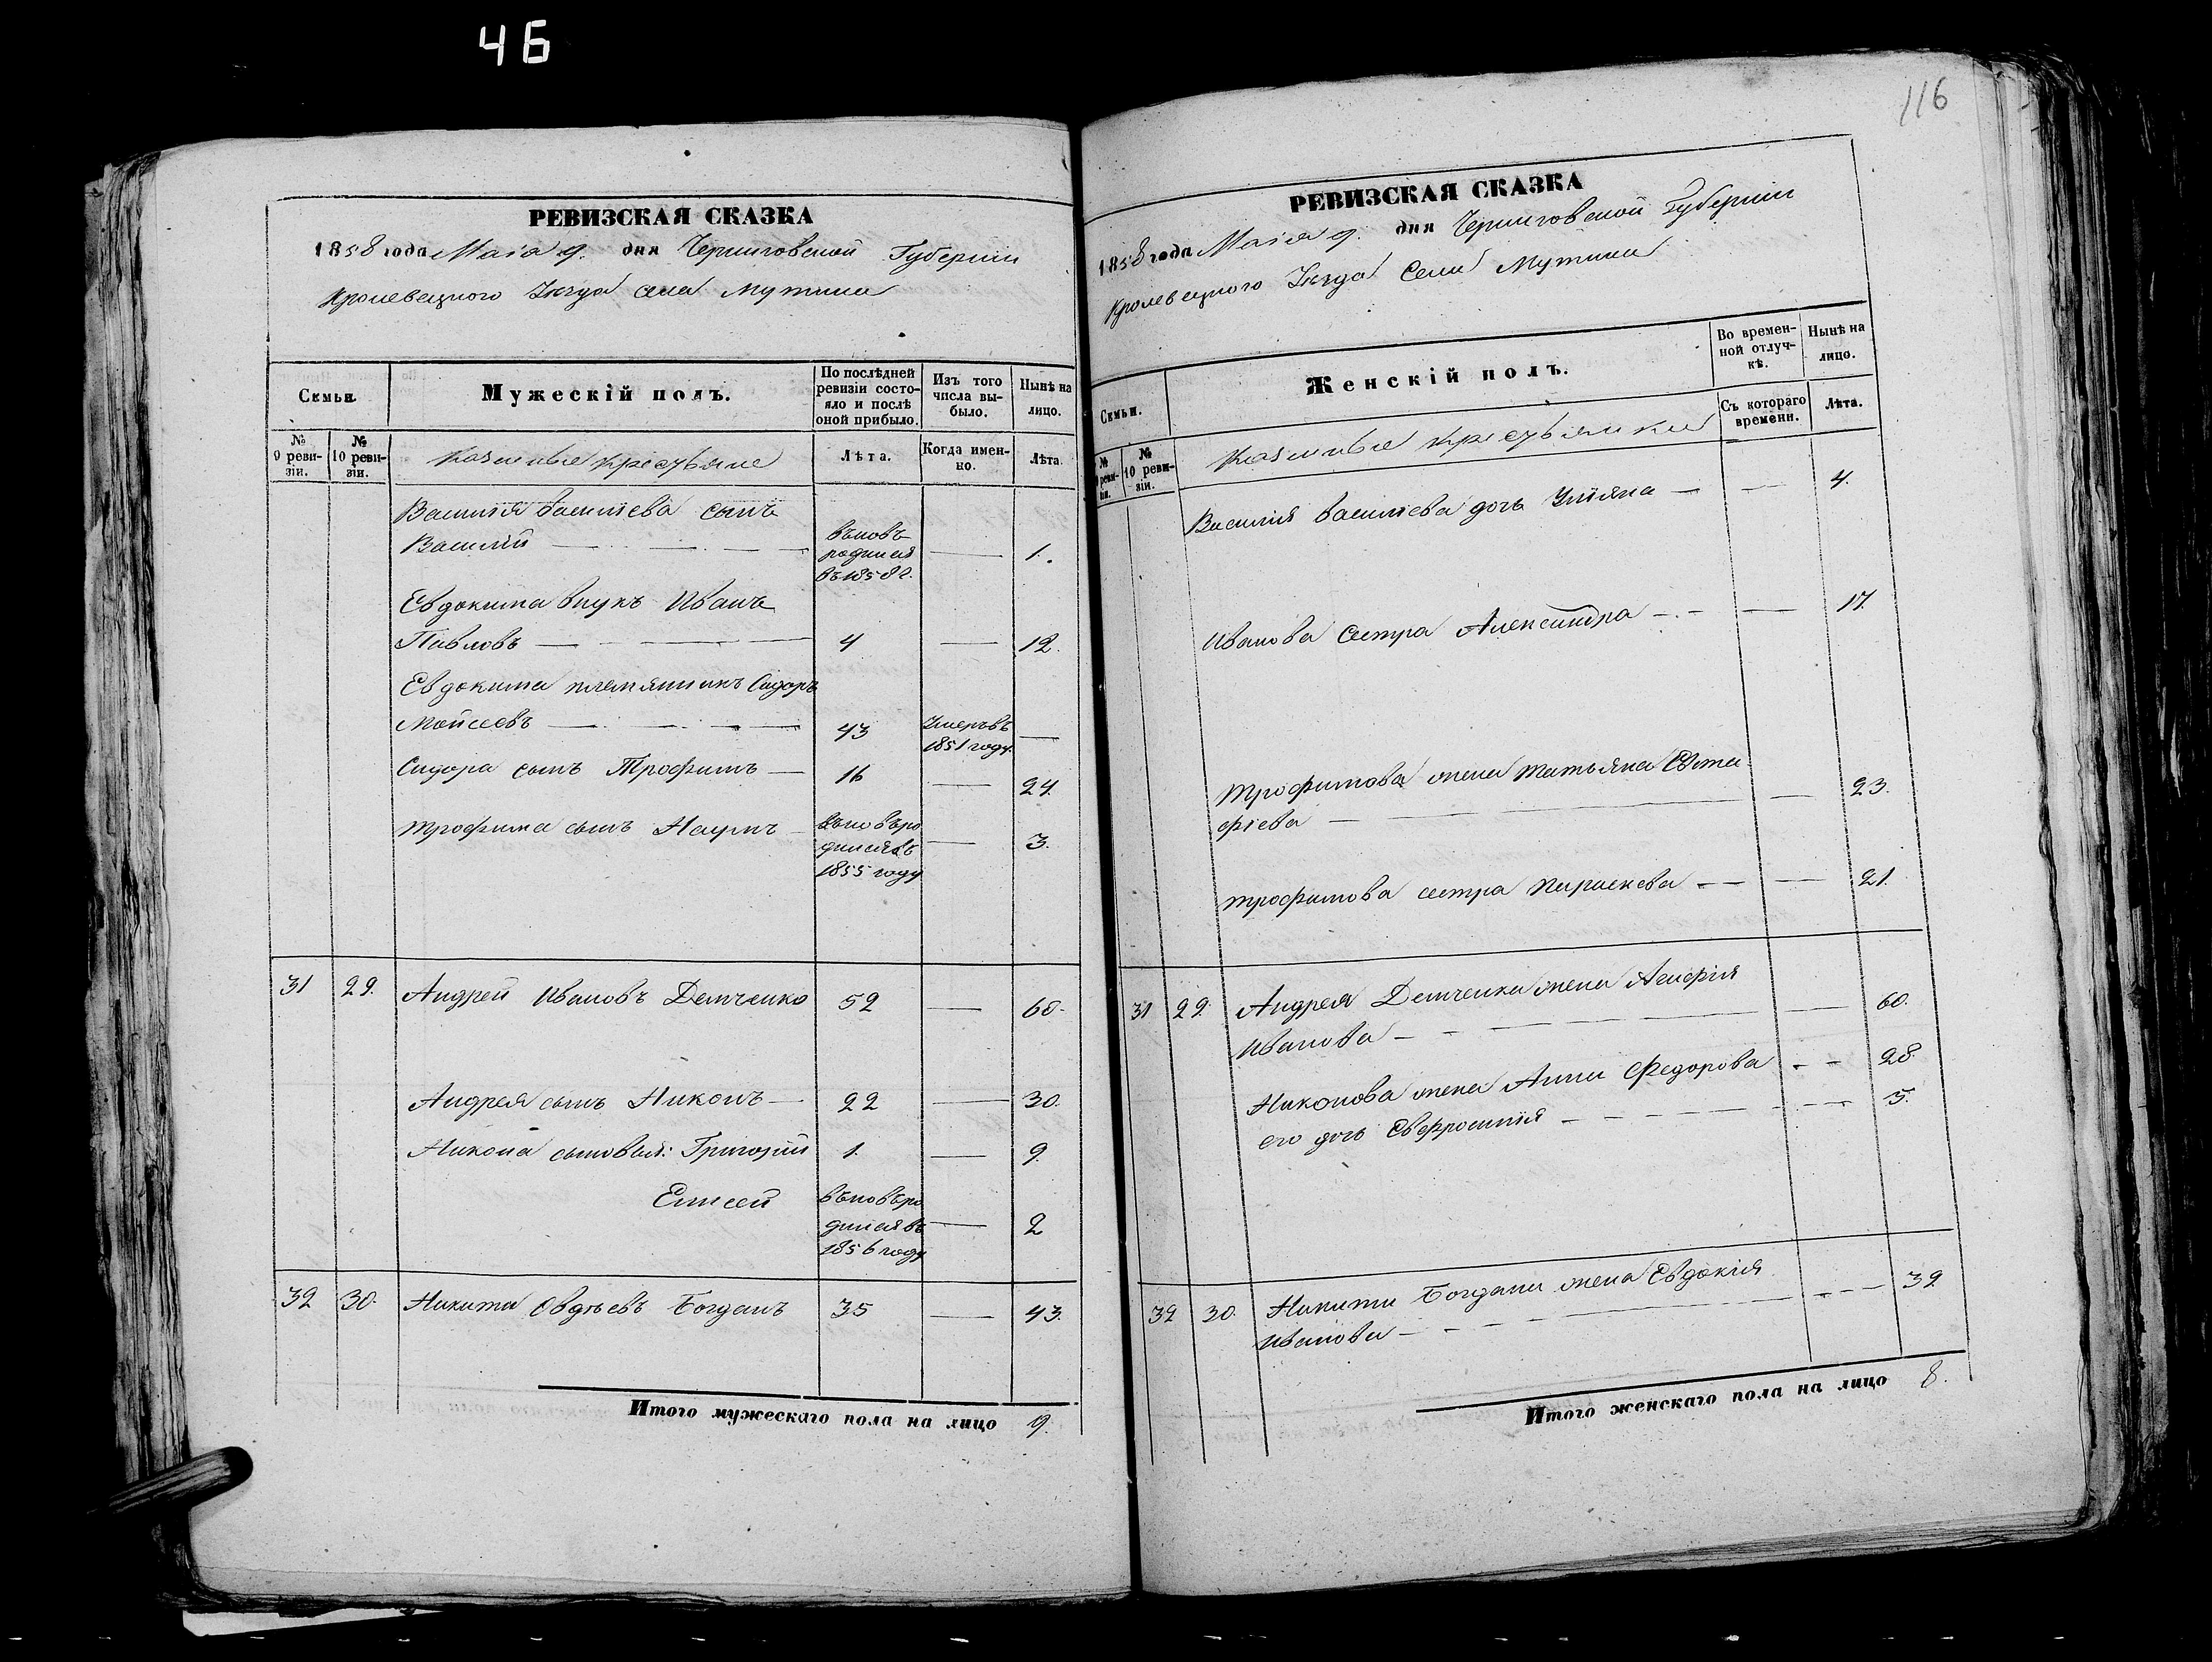 46
116
РЕВИЗСКАЯ СКАЗКА
1858 года Маія 9. дня Черниговской Губерніи
Кролевецкого Уѣзда села Мутина
Семьи.
Мужескій полъ.
По послѣдней ревизіи состо-
яло и послѣ
оной прибыло.
Изъ того
числа вы-
было.
Нынѣ на
лицо.
№
9 реви-
зіи.
№
10 реви-
зіи.
Казенные крестьяне
Лѣта.
Когда имен-
но.
Лѣта.
Василія Васильева сынъ
Василій — вновь родился въ 1858 г. — 1.
Евдокима внукъ Иванъ
Павловъ — 4 — 12.
Евдокима племянникъ Сидоръ
Моисеевъ — 43 Умеръ въ 1851 году. —
Сидора сынъ Трофимъ — 16 — 24.
Трофима сынъ Наумъ — вновь родился въ 1855 году — 3.
31 29. Андрей Ивановъ Демченко 52 — 60.
Андрея сынъ Никонъ — 22 — 30.
Никона сыновья: Григорій 1. — 9.
Елисей вновь родился въ 1856 году — 2
32 30. Никита Овдѣевъ Богданъ 35 — 43.
Итого мужескаго пола на лицо 9.
РЕВИЗСКАЯ СКАЗКА
1858 года Маія 9. дня Черниговской Губерніи
Кролевецкого Уѣзда Села Мутина
Семьи.
Женскій полъ.
Во времен-
ной отлуч-
кѣ.
Нынѣ на
лицо.
№
9 реви-
зіи.
№
10 реви-
зіи.
Казенные крестьянки
Съ котораго
времени.
Лѣта.
Василія Васильева дочь Уліяна — — 4.
Иванова сестра Александра — — 17.
Трофимова жена Татьяна Евста
фіева — — 23.
Трофимова сестра Параскева — — 21.
31 29. Андрея Демченка жена Агафія
Иванова — — 60.
Никонова жена Анна Федорова — — 28.
его дочь Евфросинія — — 5.
32 30. Никиты Богдана жена Евдокія
Иванова — — 39.
Итого женскаго пола на лицо 8.